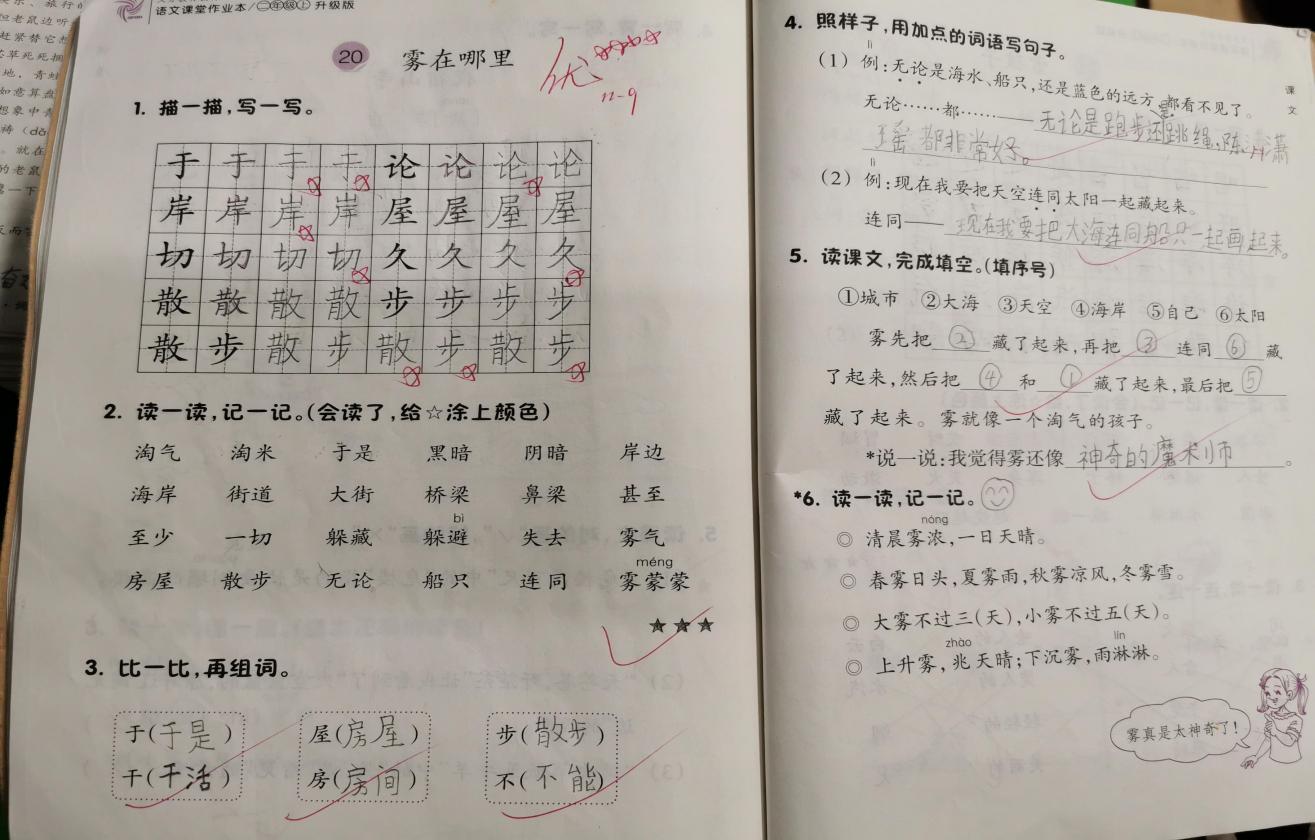 语文课堂作业本/二年级上 升级版
20 雾在哪里
优
11-9
1. 描一描,写一写。
于 于 于 于 论 论 论 论
岸 岸 岸 岸 屋 屋 屋 屋
切 切 切 切 久 久 久 久
散 散 散 散 步 步 步 步
散 步 散 步 散 步 散 步
2. 读一读,记一记。(会读了,给☆涂上颜色)
淘气 淘米 于是 黑暗 阴暗 岸边
海岸 街道 大街 桥梁 鼻梁 甚至
bì
至少 一切 躲藏 躲避 失去 雾气
méng
房屋 散步 无论 船只 连同 雾蒙蒙
★★★
3. 比一比,再组词。
于(于是) 屋(房屋) 步(散步)
干(干活) 房(房间) 不(不能)
4. 照样子,用加点的词语写句子。
lì
(1) 例:无论是海水、船只,还是蓝色的远方,都看不见了。
无论……都……——无论是跑步还是跳绳,陈潇
瑶都非常好。
lì
(2) 例:现在我要把天空连同太阳一起藏起来。
连同——现在我要把大海连同船只一起画起来。
5. 读课文,完成填空。(填序号)
①城市 ②大海 ③天空 ④海岸 ⑤自己 ⑥太阳
雾先把②藏了起来,再把③连同⑥藏
了起来,然后把④和①藏了起来,最后把⑤
藏了起来。雾就像一个淘气的孩子。
*说一说:我觉得雾还像神奇的魔术师。
*6. 读一读,记一记。
nóng
◎ 清晨雾浓,一日天晴。
◎ 春雾日头,夏雾雨,秋雾凉风,冬雾雪。
◎ 大雾不过三(天),小雾不过五(天)。
zhào lín
◎ 上升雾,兆天晴;下沉雾,雨淋淋。
雾真是太神奇了!
课
文